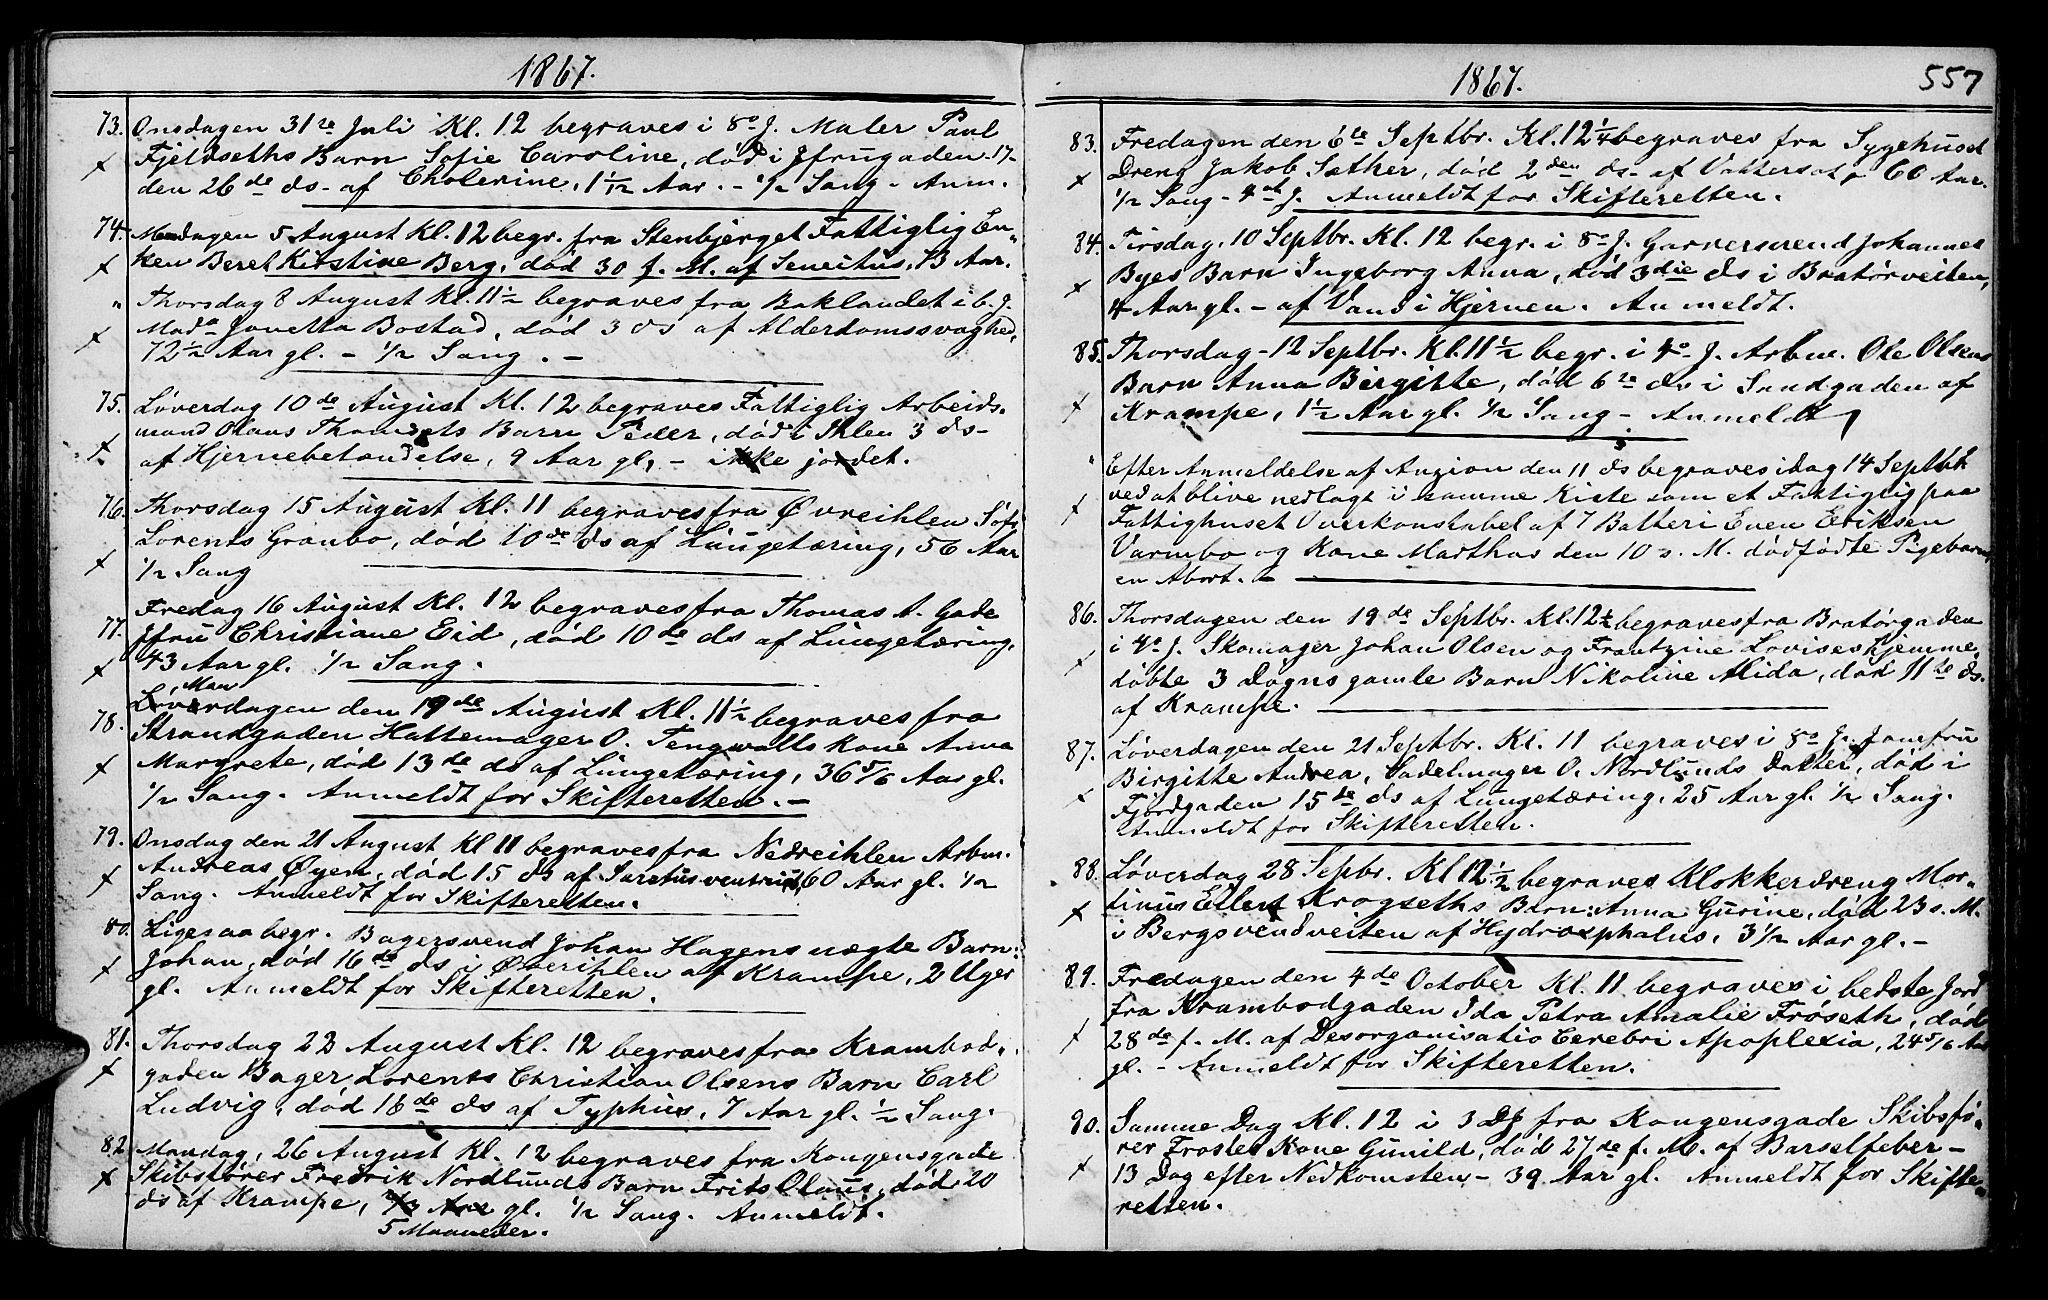 1867.
73. Onsdagen 31te Juli Kl. 12 begraves i 8de J. Maler Paul
Fjeldseths Barn Sofie Caroline, død i Jfrugaden 17-
den 26de ds- af Cholerine, 1 1/12 Aar. - 1/2 Sang - Anm.
74. Mandagen 5 August Kl. 12 begr. fra Stenbjerget Fattiglig En-
ken Beret Kirstine Berg, død 30 f. M. af Seneitus, 73 Aar.
" Thorsdag 8 August Kl. 11 1/2 begraves fra Baklandet i 6. J.
Mada Janetta Bostad, død 3 ds af Alderdomssvaghed,
72 1/2 Aar gl. - 1/2 Sang. -
75. Løverdag 10de August Kl. 12 begraves Fattiglig Arbeids-
mand Olaus Barn Peder, død i Ihlen 3 ds-
af Hjernebetændelse, 9 Aar gl, - ikke jordet.
76. Thorsdag 15 August Kl. 11 begraves fra Øvreihlen
Lorents Granbo, død 10de ds af Lungetæring, 56 Aar
1/2 Sang
Fredag 16 August Kl. 12 begraves fra Thomas A. Gade
77. Jfru Christiane Eid, død 10de ds af Lungetæring,
43 Aar gl. 1/2 Sang.
Man
Løverdagen den 19de August Kl. 11 1/2 begraves fra
78. Strandgaden Hattemager O. Tengwalls Kone Anna
Margrete, død 13de ds af Lungetæring, 36 5/6 Aar gl.
1/2 Sang. Anmeldt for Skifteretten. -
79. Onsdag den 21 August Kl 11 begraves fra Nedreihlen Arbm.
Andreas Øyen, død 15 ds af 60 Aar gl. 1/2
Sang. Anmeldt for Skifteretten.
80. Ligesaa begr. Bagersvend Johan Hagens uægte Barn:
Johan, død 16de ds i Øvreihlen af Krampe, 2 Uger
gl. Anmeldt for Skifteretten.
81. Thorsdag 22 August Kl. 12 begraves fra Krambod-
gaden Bager Lorents Christian Olsens Barn Carl
Ludvig, død 16de ds af Typhus, 7 Aar gl. 1/2 Sang.
82 Mandag, 26 August Kl. 12 begraves fra Kongensgade
Skibsfører Fredrik Nordlunds Barn Frits Olaus, død 20
ds af Krampe, Aar gl. 1/2 Sang. Anmeldt.
5 Maaneder.
1867.
557
83. Fredagen den 6te Septbr. Kl. 12 1/4 begraves fra Sygehuset
Dreng Jakob Sæther, død 2den ds- af Vattersot, 60 Aar.
1/2 Sang - 4de J. Anmeldt for Skifteretten.
84. Tirsdag, 10 Septbr. Kl. 12 begr. i 8de J. Garversvend Johannes
Byes Barn Ingeborg Anna, død 3die ds i Bratørveiten,
4 Aar gl. - af Vand i Hjernen. Anmeldt.
85. Thorsdag - 12 Septbr. Kl. 11 1/2 begr. i 4de J. Arbm. Ole Olsens
Barn Anna Birgitte, død 6te ds i Sandgaden af
Krampe, 1 1/2 Aar gl. 1/2 Sang - Anmeldt
" Efter Anmeldelse af Anzion den 11 ds begraves idag 14 Septbr
ved at blive nedlagt i samme Kiste som et Fattiglig paa
Fattighuset Overkonstabel af 7 Batteri Even Eriksen
Varmbo og Kone Marthas den 10 s. M. dødfødte Pigebarn,
en Abort. -
86. Thorsdagen den 19de Septbr. Kl. 12 1/2 begraves fra Bratørgaden
i 4de J. Skomager Johan Olsen og Frantzine Lovises hjemme-
døbte 3 Døgns gamle Barn Nikoline Alida, død 11te ds.
af Krampe.
87. Løverdagen den 21 Septbr. Kl. 11 begraves i 8de J. Jomfru
Birgitte Andrea, Sadelmager O. Nordlunds Datter, død i
Fjordgaden 15de ds af Lungetæring, 25 Aar gl. 1/2 Sang.
Anmeldt for Skifteretten.
88. Løverdag 28 Sepbr. Kl 12 1/2 begraves Klokkerdreng Mor-
tinus Ellert Krogseths Barn: Anna Gurine, død 23 s. M.
i Bergsvendveiten af Hydrocephalus, 3 1/2 Aar gl. -
89. Fredagen den 4de October Kl. 11 begraves i bedste Jord
fra Krambodgaden Ida Petra Amalie Frøseth, død
28de f. M. af Desorganisatio Cerebri Apoplexia, 24 5/6 Aar
gl. - Anmeldt for Skifteretten.
90. Samme Dag Kl. 12 i 3 Dj fra Kongensgade Skibsfø-
rer Frostes Kone Gunild, død 27de f. M. af Barselfeber -
13 Dag efter Nedkomsten - 39 Aar gl. Anmeldt for Skifte-
retten.